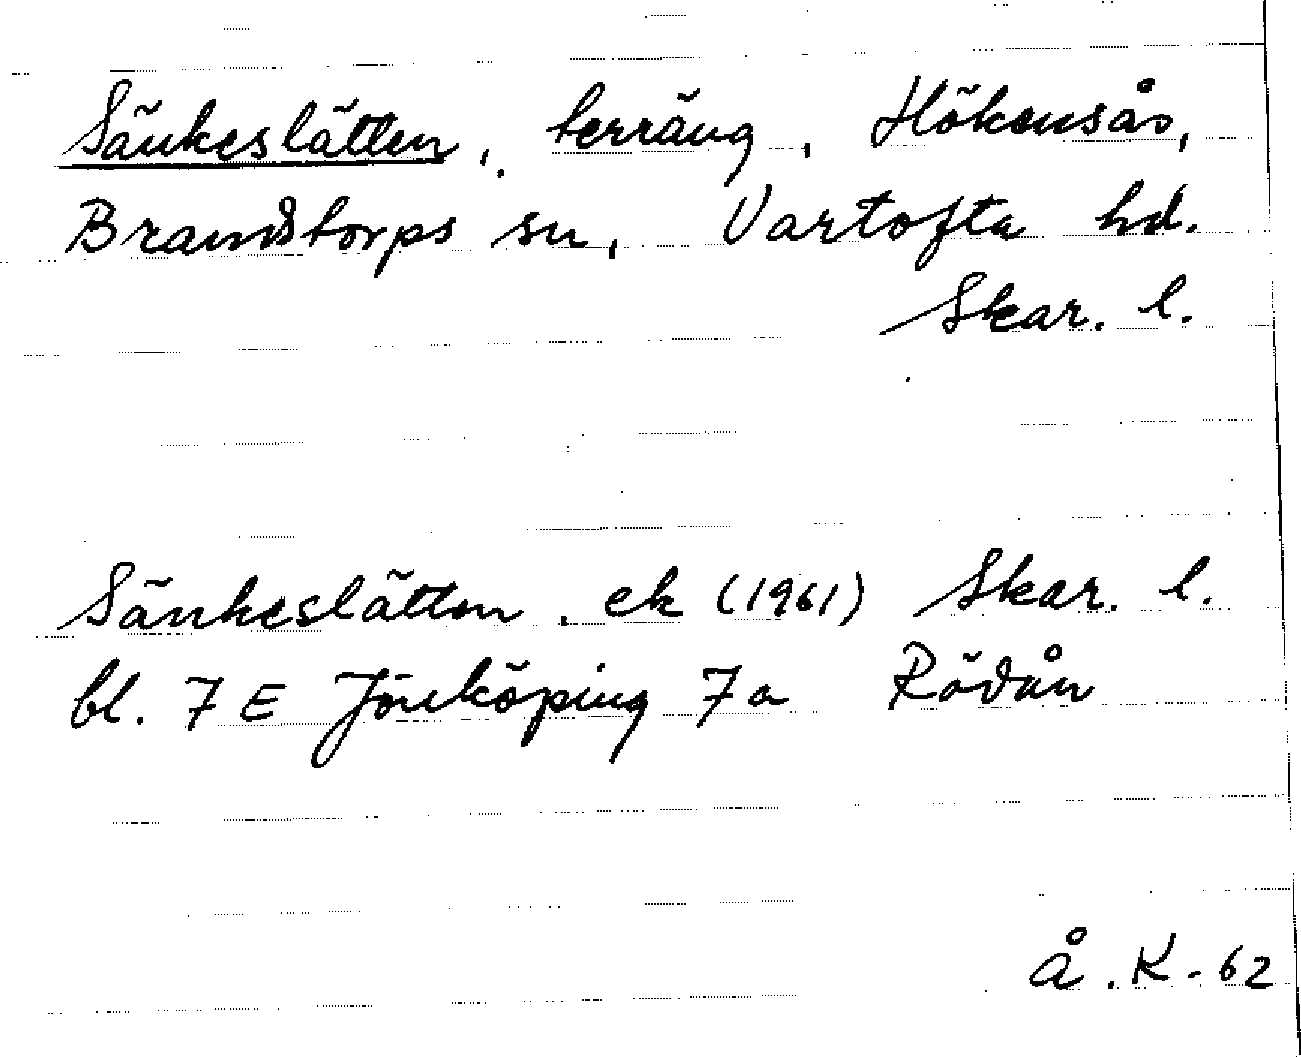 Sänkeslätten, terräng, Hökensås,
Brandstorps sn, Vartofta hd.
Skar. l.
Sänkeslätten. ek (1961) Skar. l.
bl. 7 E Jönköping 7a Rödån
Å. K-62